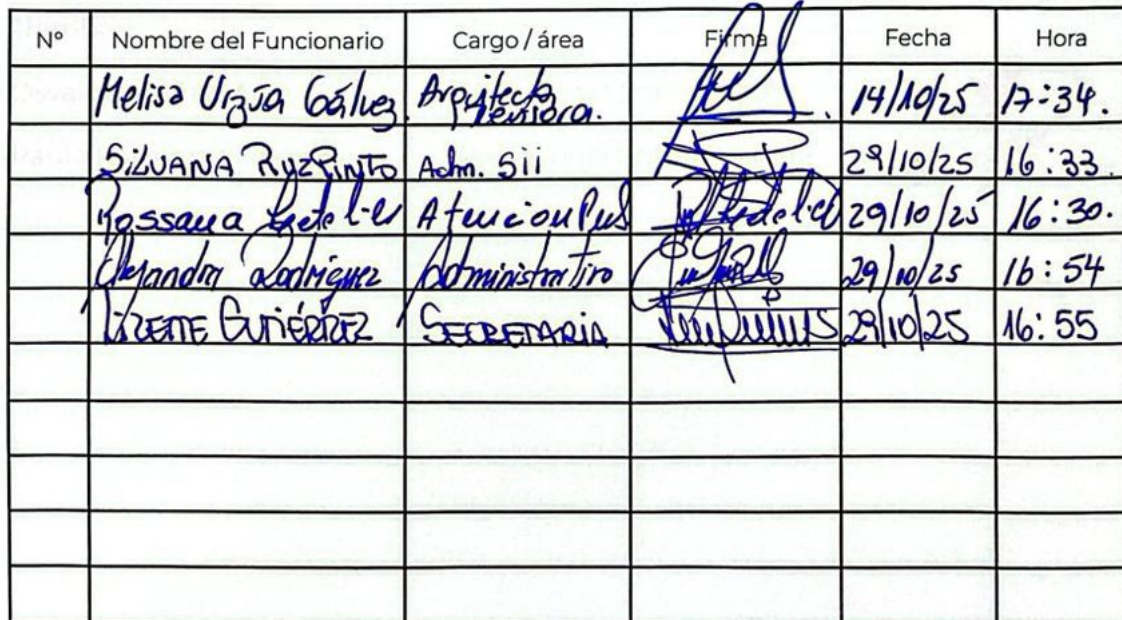 N° Nombre del Funcionario Cargo / área Firma Fecha Hora
Melisa Urzúa Gálvez. Arquitecta Revisora. 14/10/25 17:34.
SILVANA RUZ PINTO Adm. Sii 29/10/25 16:33.
Rossana Atencion Pub 29/10/25 16:30.
Alejandra Rodríguez Administrativo 29/10/25 16:54
LIZETTE GUTIÉRREZ SECRETARIA 29/10/25 16:55